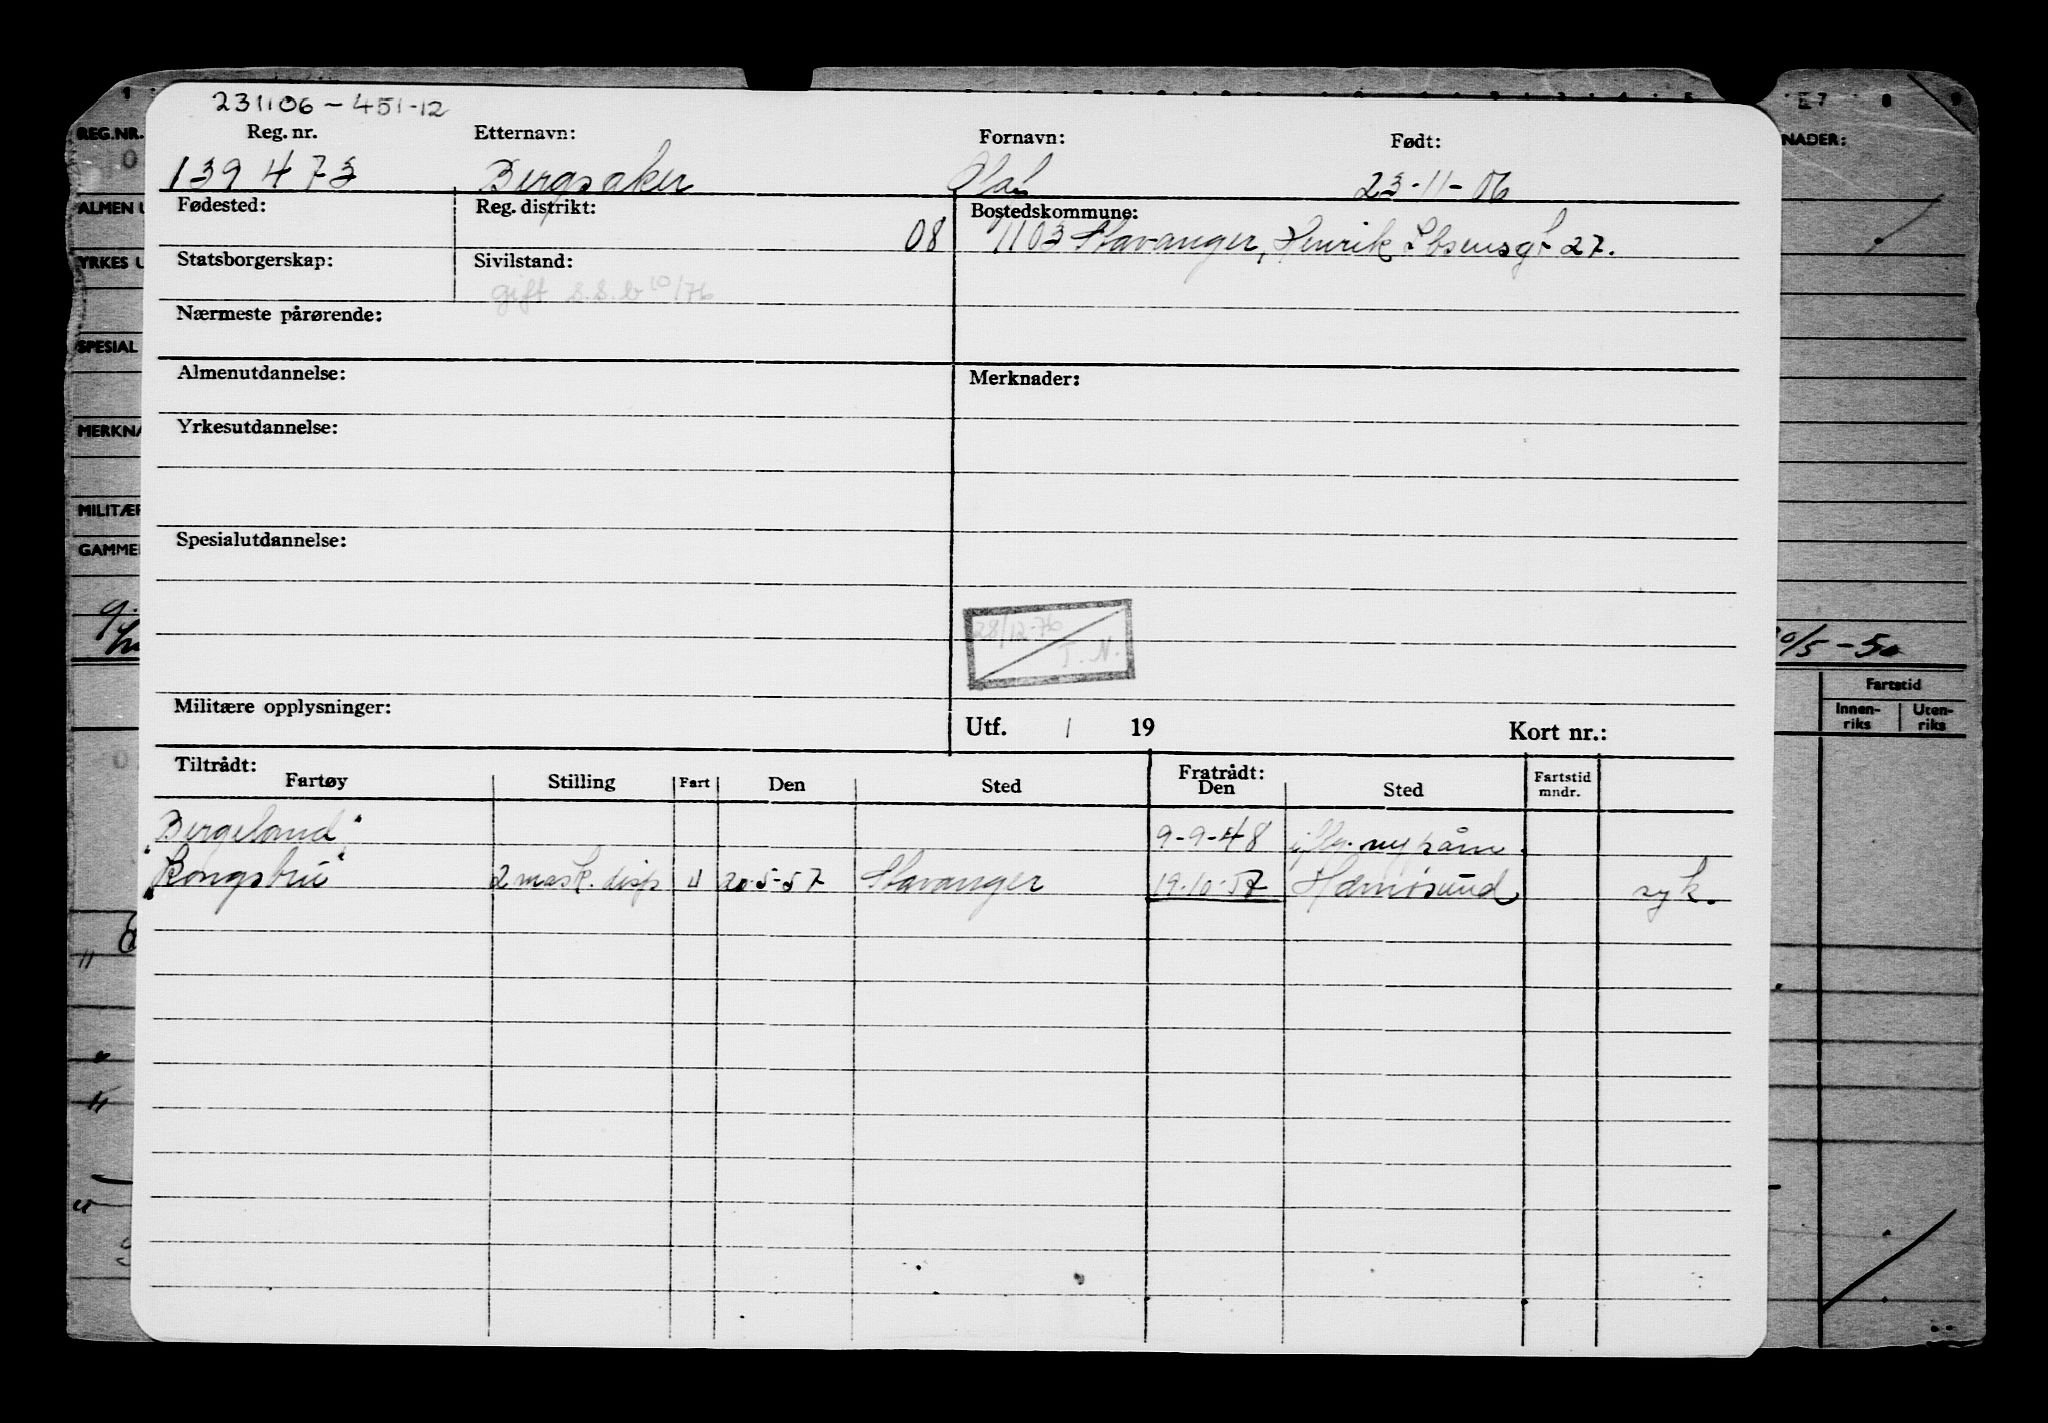 231106-451-12
Reg. nr. Etternavn: Fornavn: Født:
139473 Bergsaker Olaf 23-11-06
Fødested: Reg. distrikt: 08 Bostedskommune:
1103 Stavanger, Henrik Ibsensgt 27.
Statsborgerskap: Sivilstand:
gift S.S.b 10/76
Nærmeste pårørende:
Almenutdannelse: Merknader:
Yrkesutdannelse:
Spesialutdannelse:
28/12-76
T.N.
Militære opplysninger:
Utf. / 19 Kort nr.:
Tiltrådt: Fratrådt:
Fartøy Stilling Fart Den Sted Den Sted Fartstid mndr.
Bergeland" 9-9-48
"Kongsbru" 2 mask. disp U 20-5-57 Stavanger 19-10-57 syk.
REG.NR.
ALMEN U
YRKES U
SPESIAL
MERKNA
MILITÆR
GAMMEL
E7 8 9
NADER:
/5 - 50
Fartstid
Innen-riks Uten-riks